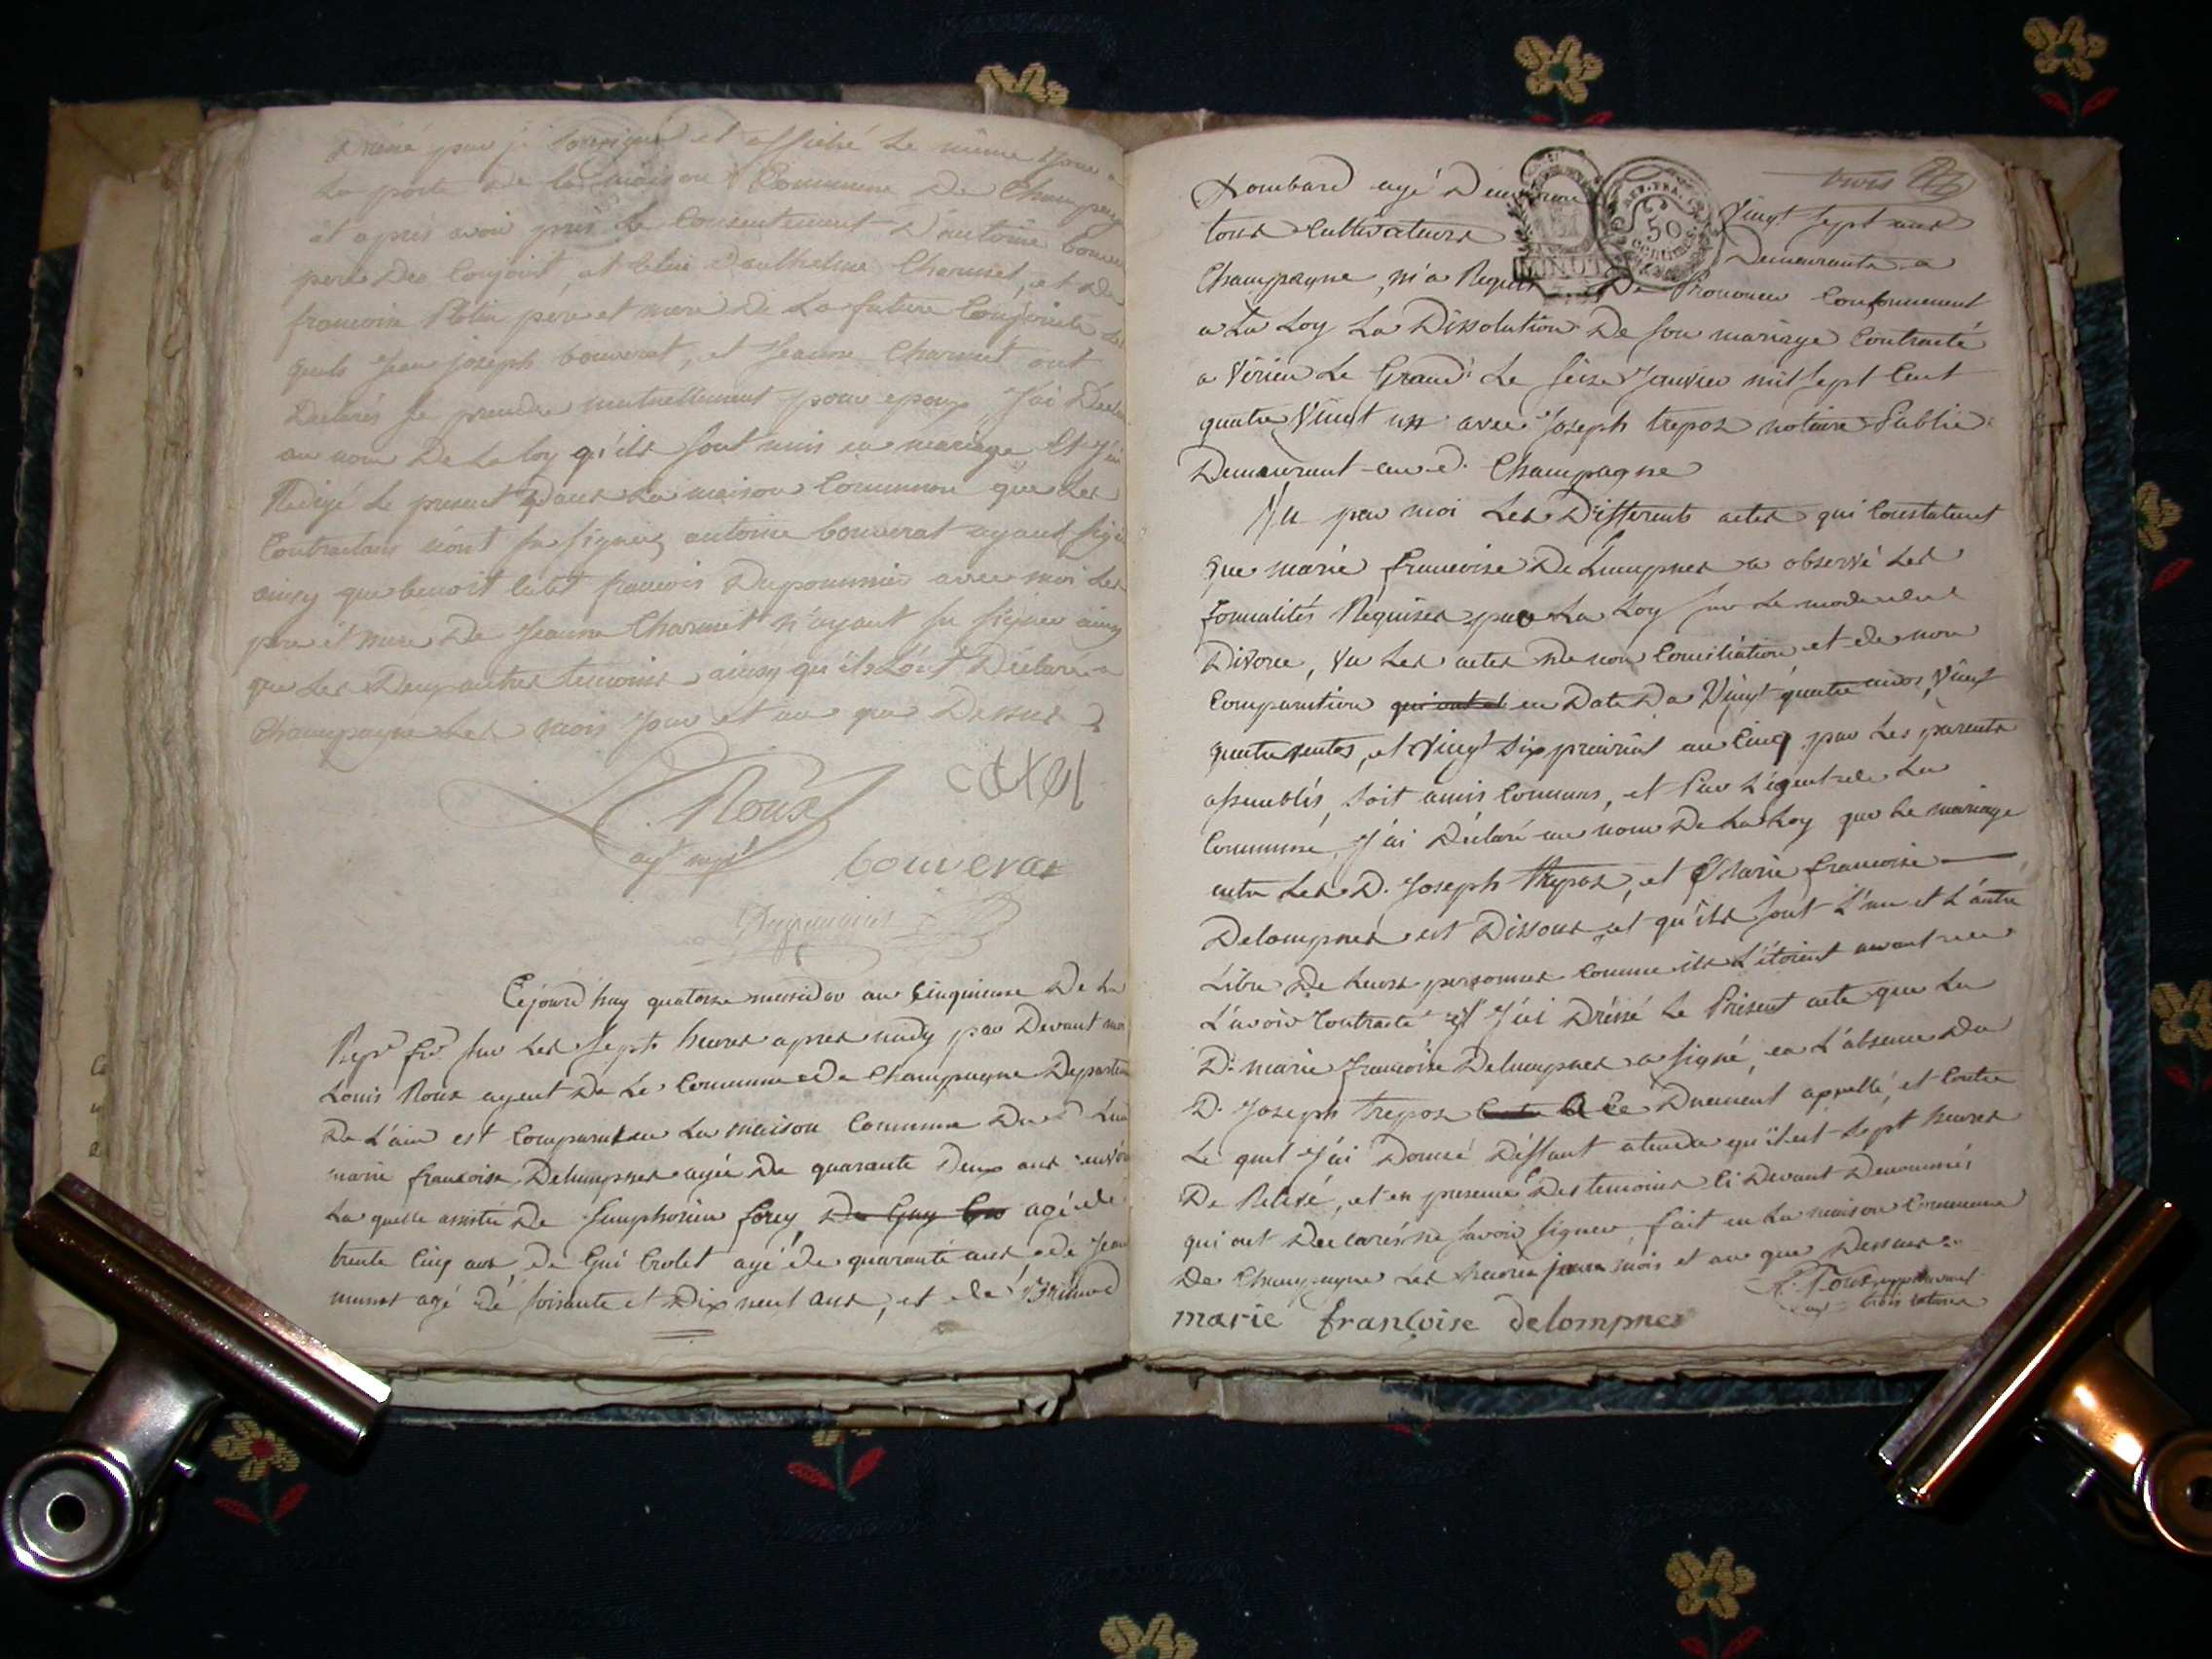 et affiché le même jour a
la porte de la maison Commune De Champagne
et après avoir pris le Consentement D'antoine bouverat
pere Des Conjoint, et Celui D'anthelme Charmet, et De
francoise Platin pere et mere De La future Conjointe
quels Jean joseph bouverat, et Jeanne Charmet ont
Déclarés se prendre mutuellement pour epoux J'ai Declaré
au nom De La loy qu'ils sont unis en mariage Et j'ai
Redigé le present Dans la maison Commune que les
Contractans n'ont su signer, antoine bouverat ayant signé
ainsy que benoit Cutet francois Duponnier avec moi Les
pere et mere De Jeanne Charmet n'ayant su signer ainsy
que Les Deux autres temoins ainsy qu'ils L'ont Déclaré a
Champagne Les mois jour et an que Dessus
L. Roux
agt
bouverat
Cejourd'huy quatorze messidor an Cinquieme De La
Repe fse sur Les Sept heures apres midy par Devant moi
Louis Roux agent De Le Commune De Champagne Departem
De L'ain est Comparu en La maison Commune
marie francoise Delompnes agée De quarante Deux ans
La quelle assistée De Simphorien forey De Guy agé de
trente Cinq ans, De Gui Crolet agé de quarante ans De Jean
agé De soisante et Dix neuf ans, et de
trois
Dombard agé De Vingt Sept ans
tous Cultivateurs Demeurants a
Champagne, m'a Requis De Prononcer Conformement
a La Loy La Dissolution De son mariage Contracté
a Virieu Le Grand Le seize Janvier mil sept Cent
quatre Vingt un avec Joseph trepoz notaire Public
Demeurant au d. Champagne
Vu par moi Les Differents actes qui Constatent
que marie francoise Delompnes a observé Les
formalités Requises par La Loy sur Le mode de
Divorce, Vu Les actes De non Conciliation et de non
Comparution qui ont et en Date Da Vingt quatre Vingt
quatre et Vingt Six prairial an Cinq par Les parents
assemblés, soit amis Communs, et Par L'agent de La
Commune, J'ai Déclaré au nom De La Loy que Le mariage
entre Les D. Joseph trepoz, et Marie francoise
Delompnes est Dissous et qu'ils sont L'un et L'autre
Libre De Leurs personnes Comme ils L'étoient avant de
L'avoir Contracté Et J'ai Dréssé Le Présent acte que La
De marie francoise Delompnes a signé, en L'absence Du
D. Joseph trepoz Duement appellé, et Contre
Le quel J'ai Donné Deffaut atendu qu'il est sept heures
De Relevé, et en presence Des temoins Ci Devant Denommés
qui ont Declarés ne savoir signer, fait en La maison Commune
De Champagne Les heure jour mois et an que Dessus
L. Roux approuvant
agt trois ratures
marie françoise delompnes
50
Centimes